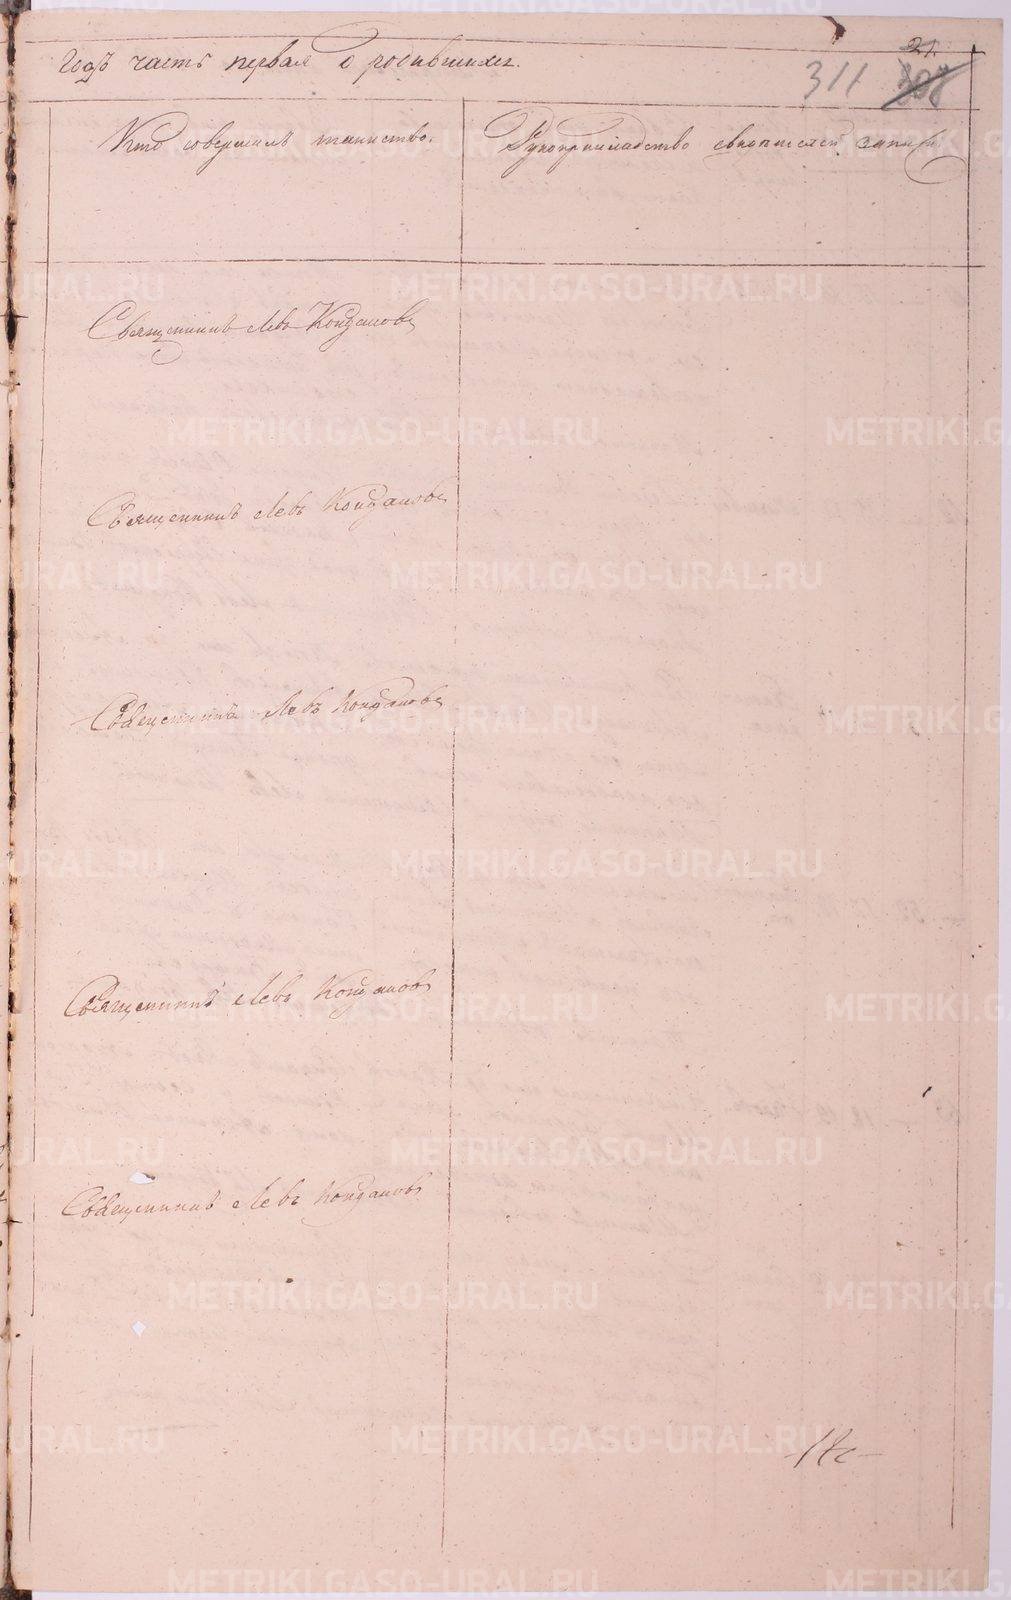 21.
311 308
годъ часть первая о родившихся.
Кто совершалъ таинство.
Рукоприкладство свидѣтелей записи
Священникъ Левъ Кондаковъ
Священникъ Левъ Кондаковъ
Священникъ Левъ Кондаковъ
Священникъ Левъ Кондаковъ
Священникъ Левъ Кондаковъ
METRIKI.GASO-URAL.RU